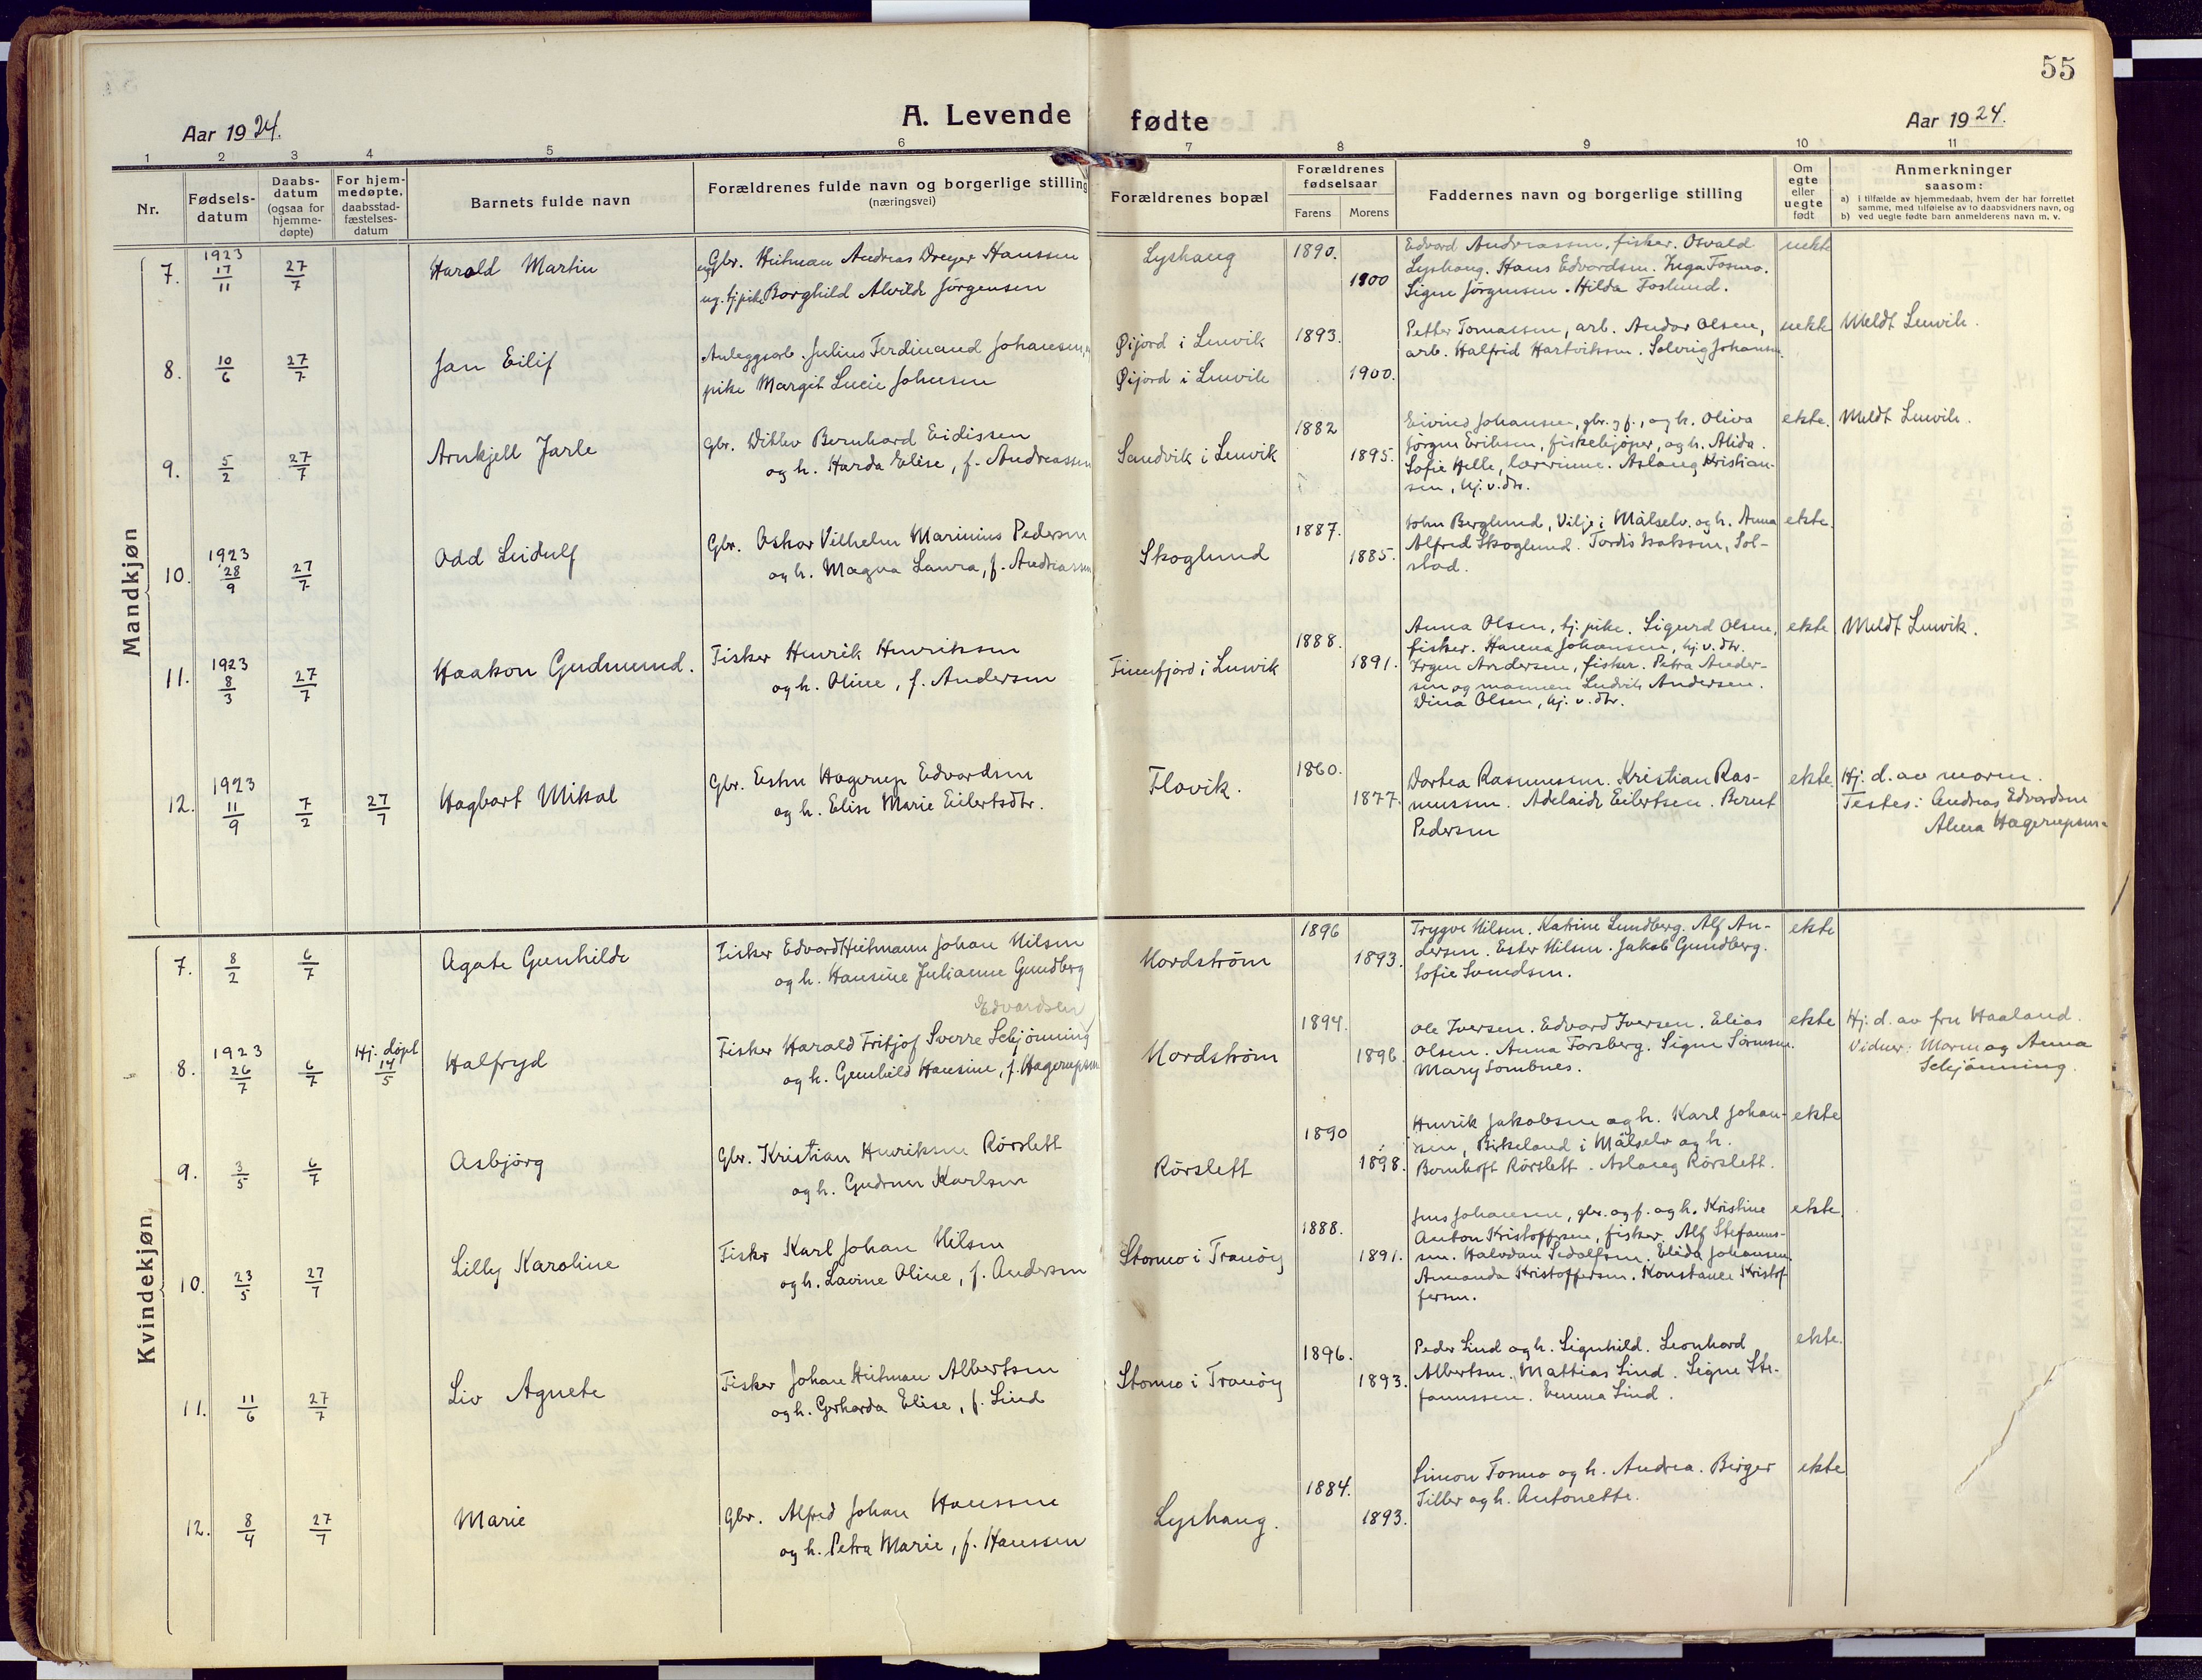 55
A. Levende fødte
Aar 1924.
Aar 1924.
1 2 3 4 5 6 7 8 9 10 11
Nr.
Fødsels-
datum
Daabs-
datum
(ogsaa for
hjemme-
døpte)
For hjem-
medøpte,
daabsstad-
fæstelses-
datum
Barnets fulde navn
Forældrenes fulde navn og borgerlige stilling
(næringsvei)
Forældrenes bopæl
Forældrenes
fødselsaar
Farens Morens
Faddernes navn og borgerlige stilling
Om
egte
eller
uegte
født
Anmerkninger
saasom:
a) i tilfælde av hjemmedaab, hvem der har forrettet
samme, med tilføielse av to daabsvidners navn, og
b) ved uegte fødte barn anmelderens navn m. v.
Mandkjøn
7. 1923 17/11 27/7 Harald Martin
Gbr. Heitman Andreas Dreyer Hanssen
ug. tj.pike Borghild Alvilde Jörgensen
Lyshaug 1890. 1900
Edvard Andreassen, fisker. Osvald
Lyshaug. Hans Edvardsen. Inga Fosmo.
Signe Jörgensen. Hilda Foslund.
uekte
8. 10/6 27/7 Jan Eilif
Anleggsarb. Julius Ferdinand Johansen,
pike Margit Lucie Johnsen
Øijord i Lenvik
Øijord i Lenvik
1893. 1900.
Petter Tomassen, arb. Andor Olsen,
arb. Halfrid Hartviksen. Solveig Johansen.
uekte Meldt Lenvik.
9. 5/2 27/7 Arnkjell Jarle
Gbr. Ditlev Bernhard Eidissen
og h. Harda Elise, f. Andreassen
Sandvik i Lenvik 1882 1895.
Eivind Johansen, gbr. og f., og h. Oliva
Jörgen Eriksen, fiskekjöper, og h. Alida.
Sofie Helle, lærerinne. Aslaug Kristian-
sen, hj. v. dtr.
ekte. Meldt Lenvik.
10. 1923 28/9 27/7 Odd Leidulf
Gbr. Oskar Vilhelm Marinius Pedersen
og h. Magna Laura, f. Andreassen
Skoglund 1887. 1885.
John Berglund, Vilje i Målselv. og h. Anna
Alfred Skoglund. Tordis Isaksen, Sol-
stad.
ekte.
11. 1923 8/3 27/7 Haakon Gudmund.
Fisker Henrik Henriksen
og h. Oline, f. Andersen
Finnfjord i Lenvik 1888. 1891.
Anna Olsen, tj. pike. Sigurd Olsen,
fisker. Hanna Johansen, hj. v. dtr.
Andersen, fisker. Petra Ander-
sen og mannen Ludvik Andersen.
Dina Olsen, hj. v. dtr.
ekte Meldt Lenvik.
12. 1923 11/9 7/2 27/7 Hagbart Mikal
Gbr. Hagerup Edvardsen
og h. Elise Marie Eilertsdtr.
Flovik. 1860. 1877.
Dortea Rasmussen. Kristian Ras-
mussen. Adelaide Eilertsen. Bernt
Pedersen
ekte. Hj. d. av moren.
Testes: Andreas Edvardsen
Alma Hagerupsen.
Kvindekjøn
7. 8/2 6/7 Agate Gunhilde
Fisker Edvard Heitmann Johan Nilsen
og h. Hansine Julianne Gundberg
Edvardsen
Nordström 1896 1893.
Trygve Nilsen. Katrine Lundberg. Alf An-
dersen. Ester Nilsen. Jakob Gundberg.
Sofie Svendsen.
ekte
8. 1923 26/7 6/7 Hj. döpt 14/5 Halfryd
Fisker Harald Fritjof Sverre Schjönning
og h. Gunhild Hansine, f. Hagerupsen
Nordström 1894. 1896.
Ole Iversen. Edvard Iversen. Elias
Olsen. Anna Forsberg. Signe Sörensen.
Mary Tombnes.
ekte Hj. d. av fru Haaland.
Vidner: Moren og Anna
Schjönning.
9. 3/5 6/7 Asbjörg
Gbr. Kristian Henriksen Rörslett
og h. Gudrun Karlsen
Rörslett 1890 1898.
Henrik Jakobsen og h. Karl Johan-
sen, Birkeland i Målselv og h.
Bernhoft Rörslett. Aslaug Rörslett.
ekte
10. 23/5 27/7 Lilly Karoline
Fisker Karl Johan Nilsen
og h. Lavine Oline, f. Andersen
Stormo i Tranöy 1888. 1891.
Jens Johansen, gbr. og f. og h. Kristine
Anton Kristoffersen, fisker. Alf Stefanus-
sen. Halvdan Edolfsen. Elida Johansen.
Amanda Kristoffersen. Konstance Kristof-
fersen.
ekte.
11. 11/6 27/7 Liv Agnete
Fisker Johan Heitman Albertsen
og h. Gerharda Elise, f. Lind
Stormo i Tranöy 1896. 1893.
Peder Lind og h. Signhild. Leonhard
Albertsen. Mattias Lind. Signe Ste-
fanussen. Emma Lind.
ekte.
12. 8/4 27/7 Marie
Gbr. Alfred Johan Hanssen
og h. Petra Marie, f. Hanssen
Lyshaug. 1884. 1893.
Simon Fosmo og h. Andrea. Birger
Tiller og h. Antonette.
ekte